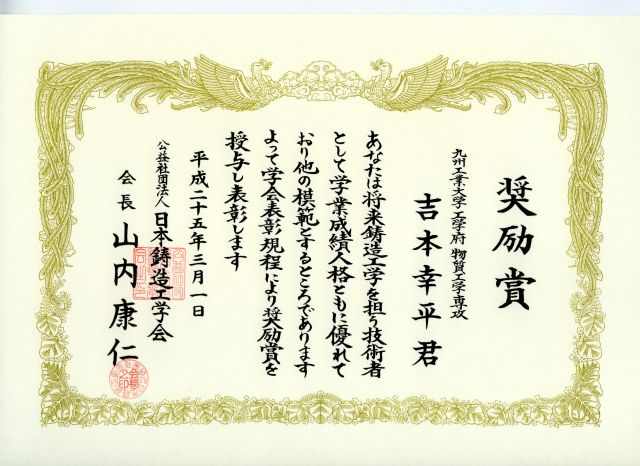 奨励賞
九州工業大学 工学府 物質工学専攻
吉本幸平君
あなたは将来鋳造工学を担う技術者
として学業成績人格ともに優れて
おり他の模範とするところであります
よって学会表彰規程により奨励賞を
授与し表彰します
平成二十五年三月一日
公益社団法人 日本鋳造工学会
会長 山内康仁